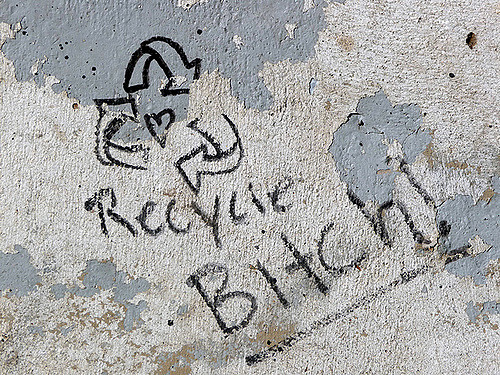 Recycle
Bitch!